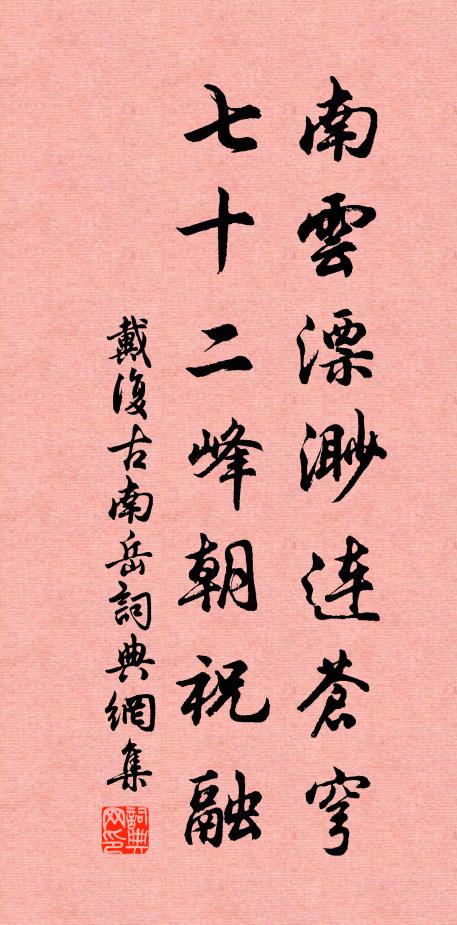 南雲漂渺連蒼穹
七十二峰朝祝融
戴復古南岳詞典網集
詞典网印